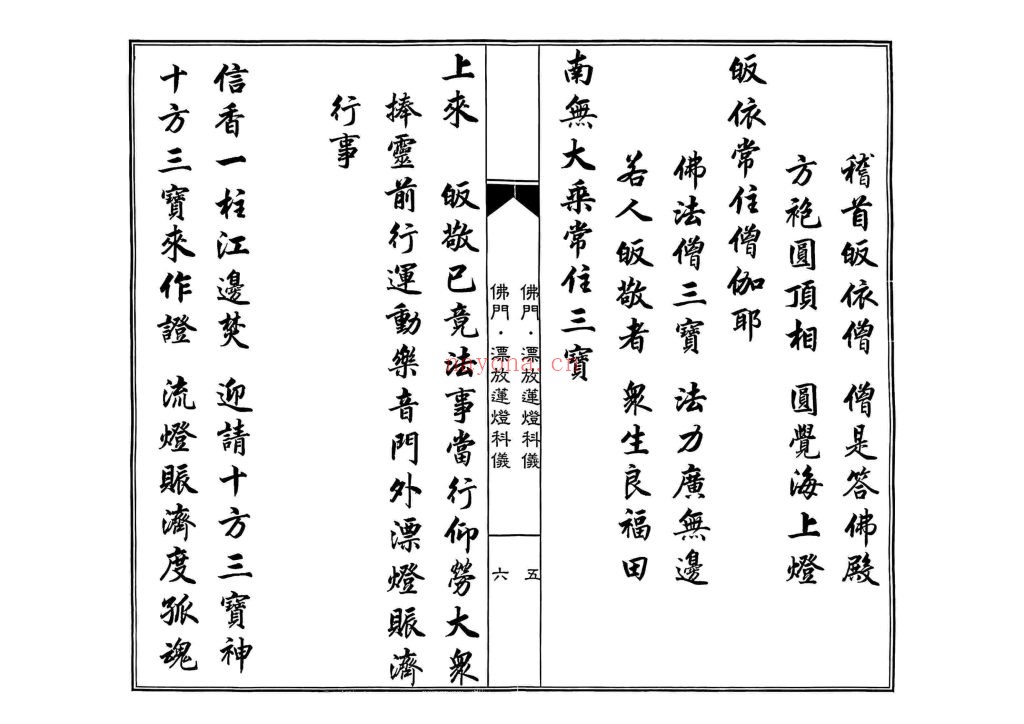 稽首皈依僧 僧是答佛殿
方袍圓頂相 圓覺海上燈
皈依常住僧伽耶
佛法僧三寶 法力廣無邊
若人皈敬者 衆生良福田
南無大乘常住三寶
佛門·漂放蓮燈科儀 五
佛門·漂放蓮燈科儀 六
上來 皈敬已竟法事當行仰勞大衆
捧靈前行運動樂音門外漂燈賑濟
行事
信香一柱江邊焚 迎請十方三寶神
十方三寶來作證 流燈賑濟度孤魂